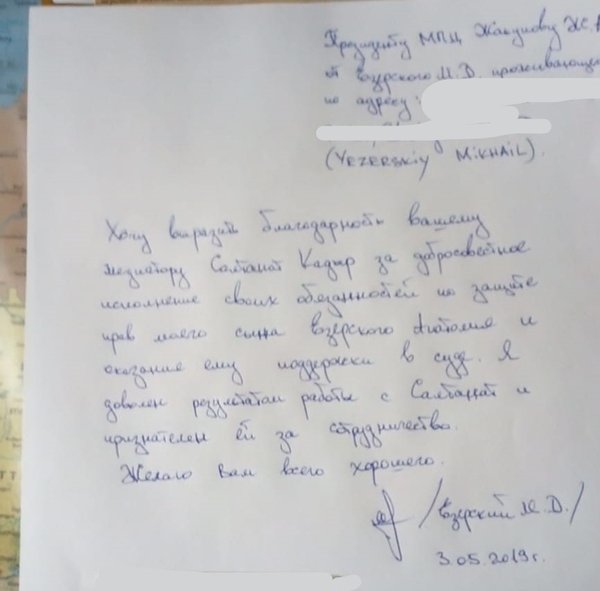 Президенту МПЦ Жакупову Ж.А
от Езерского М.Д. проживающего
по адресу:
(YEZERSKIY MIKHAIL).
Хочу выразить благодарность вашему
медиатору Салтанат Кадыр за добросовестное
исполнение своих обязанностей по защите
прав моего сына Езерского Анатолия и
оказание ему поддержки в суде. Я
доволен результатом работы с Салтанат и
признателен ей за сотрудничество.
Желаю Вам всего хорошего.
/Езерский М.Д./
3.05.2019г.